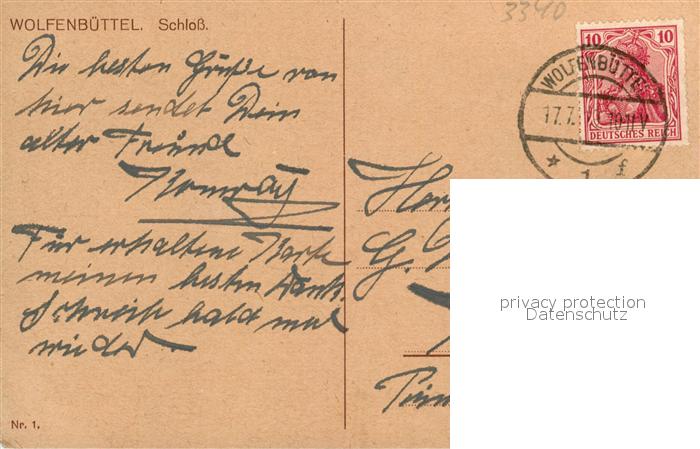 3340
WOLFENBÜTTEL. Schloß.
Die besten Grüße von
hier sendet Dein
alter Freund
Für erhaltene Karte
meinen besten Dank.
Schreibe bald mal
wieder
Nr. 1.
10 10
DEUTSCHES REICH
WOLFENBÜTTE
17.7.
* 1 f
G.
privacy protection
Datenschutz